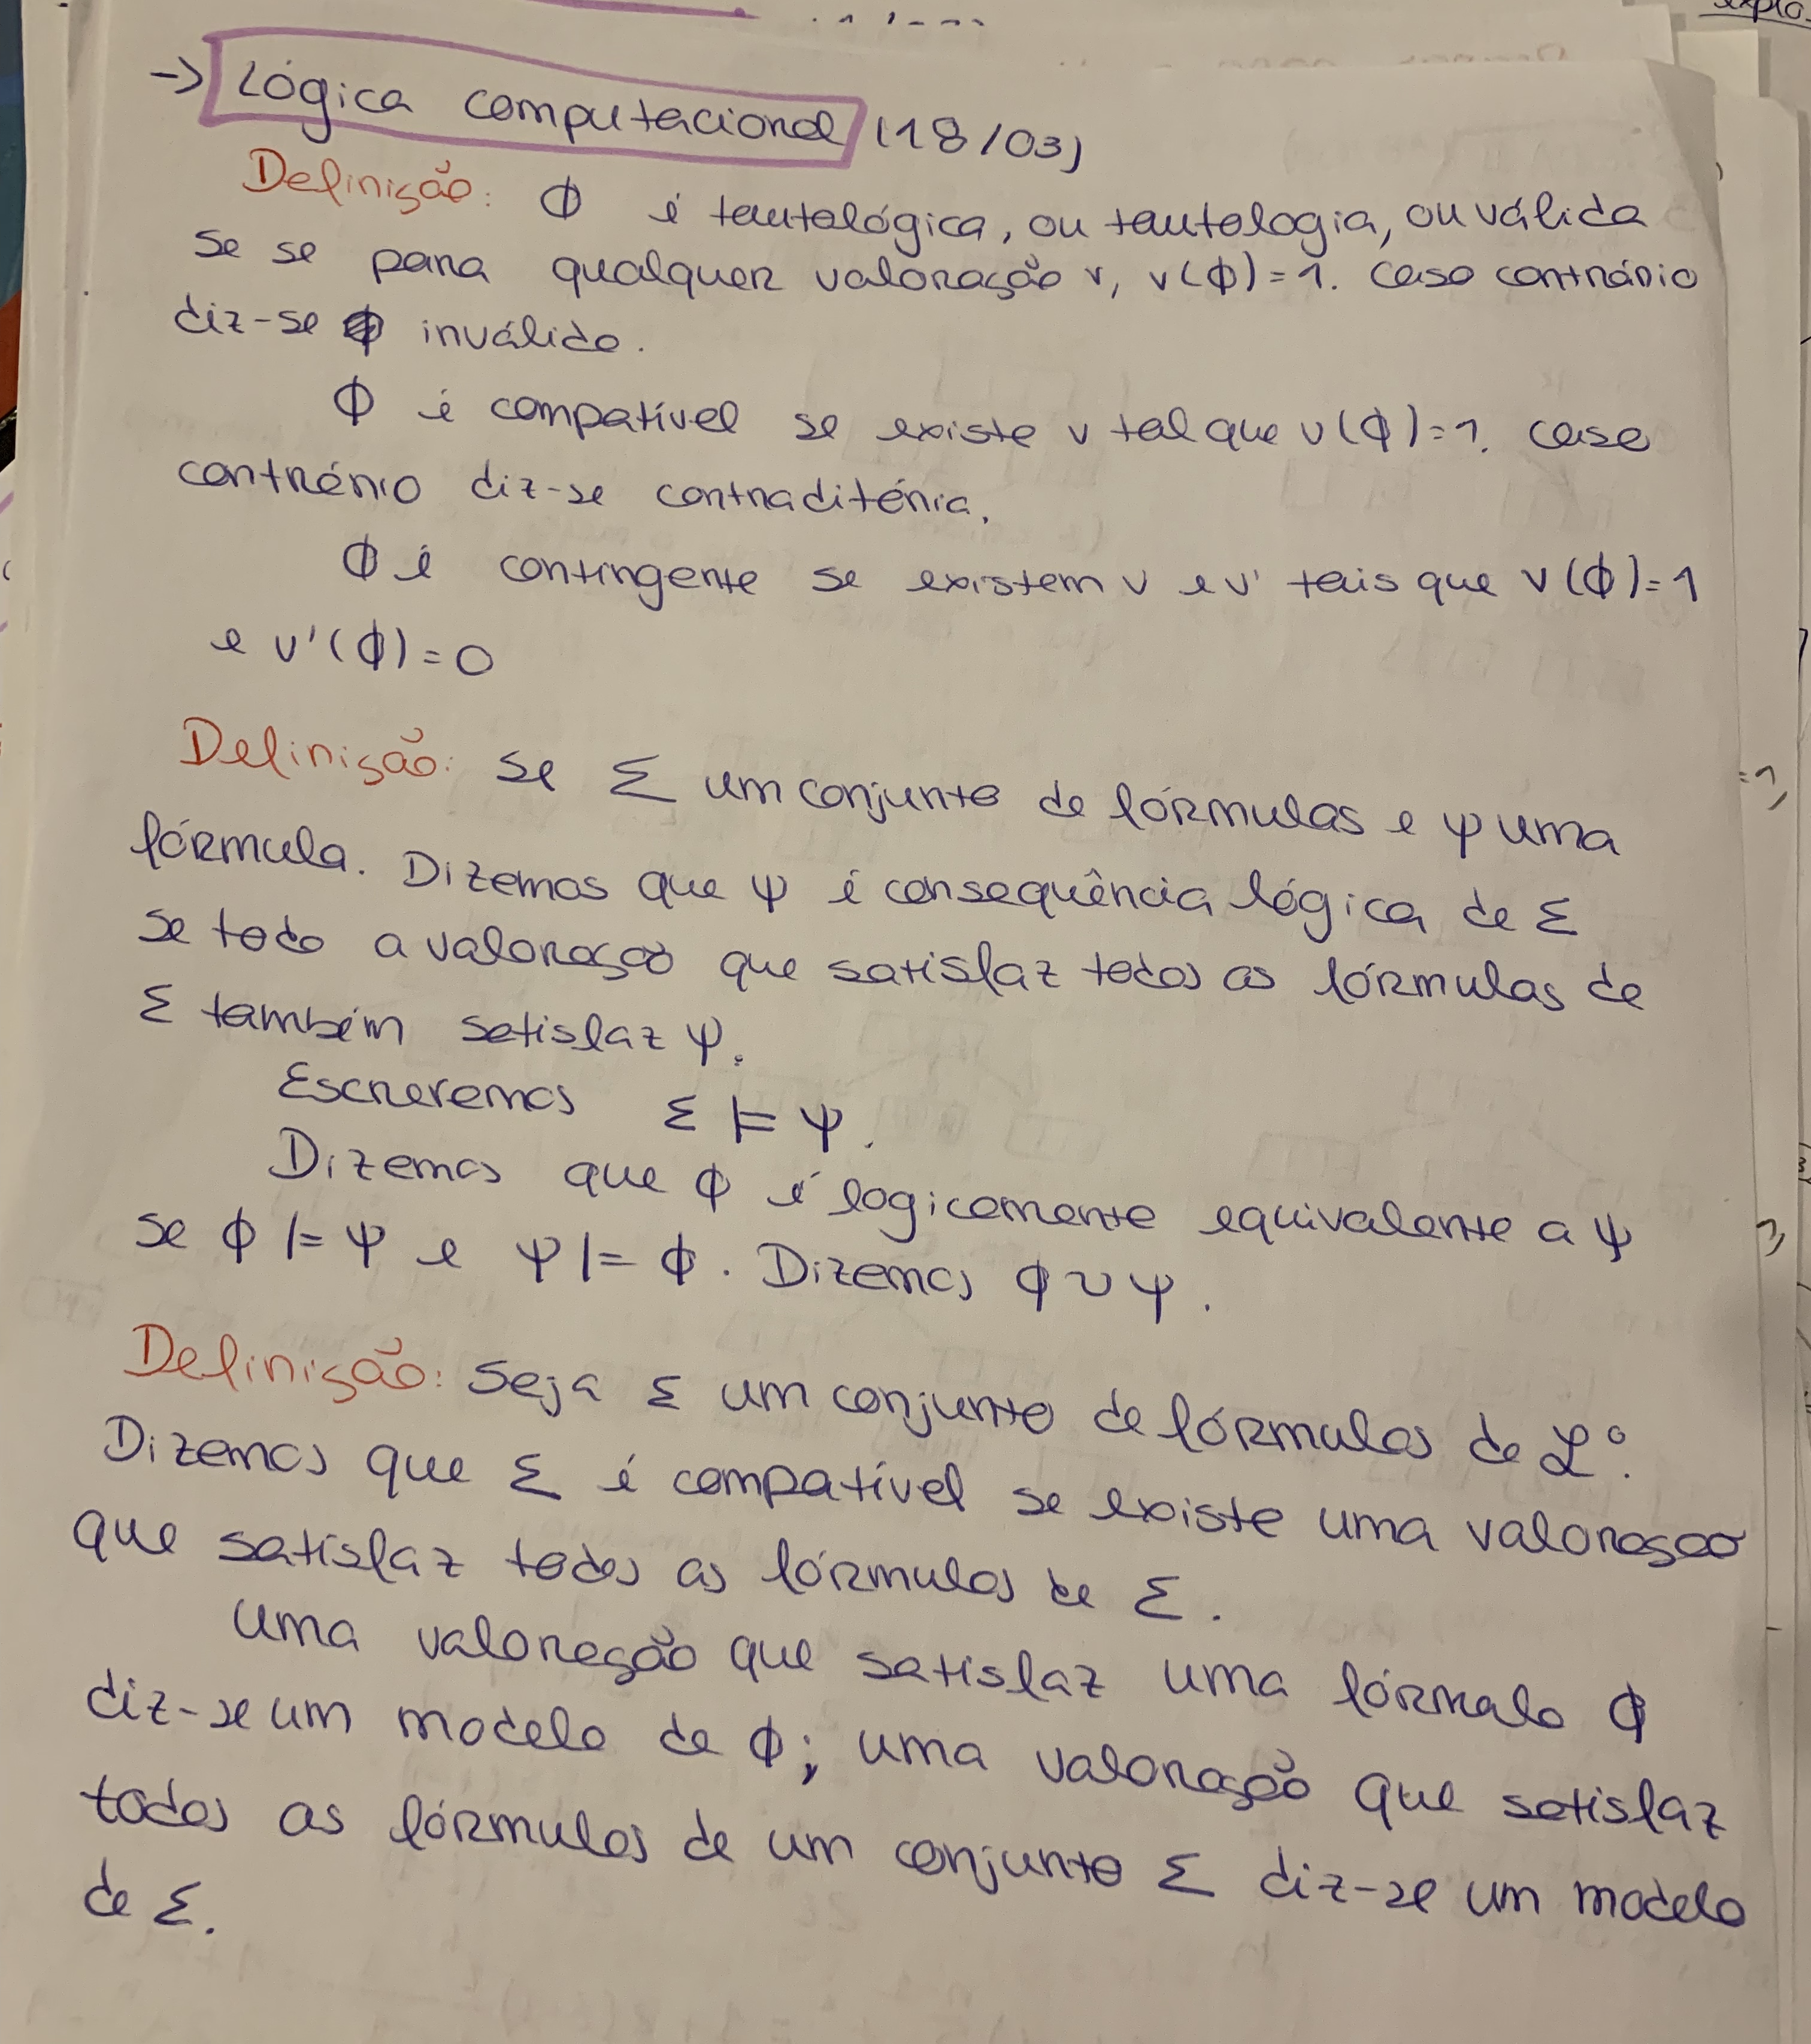 → Lógica computacional (18/03)
Definição: ϕ é tautológica, ou tautologia, ou válida
se se para qualquer valoração v, v(ϕ)=1. Caso contrário
diz-se ϕ inválida.
ϕ é compatível se existe v tal que v(ϕ)=1. Caso
contrário diz-se contraditória.
ϕ é contingente se existem v e v' tais que v(ϕ)=1
e v'(ϕ)=0
Definição: Se Σ um conjunto de fórmulas e ψ uma
fórmula. Dizemos que ψ é consequência lógica de Σ
se toda a valoração que satisfaz todas as fórmulas de
Σ também satisfaz ψ.
Escrevemos Σ ⊨ ψ.
Dizemos que ϕ é logicamente equivalente a ψ
se ϕ |= ψ e ψ |= ϕ. Dizemos ϕ ~ ψ.
Definição: Seja Σ um conjunto de fórmulas de ℒ°.
Dizemos que Σ é compatível se existe uma valoração
que satisfaz todas as fórmulas de Σ.
Uma valoração que satisfaz uma fórmula ϕ
diz-se um modelo de ϕ; uma valoração que satisfaz
todas as fórmulas de um conjunto Σ diz-se um modelo
de Σ.